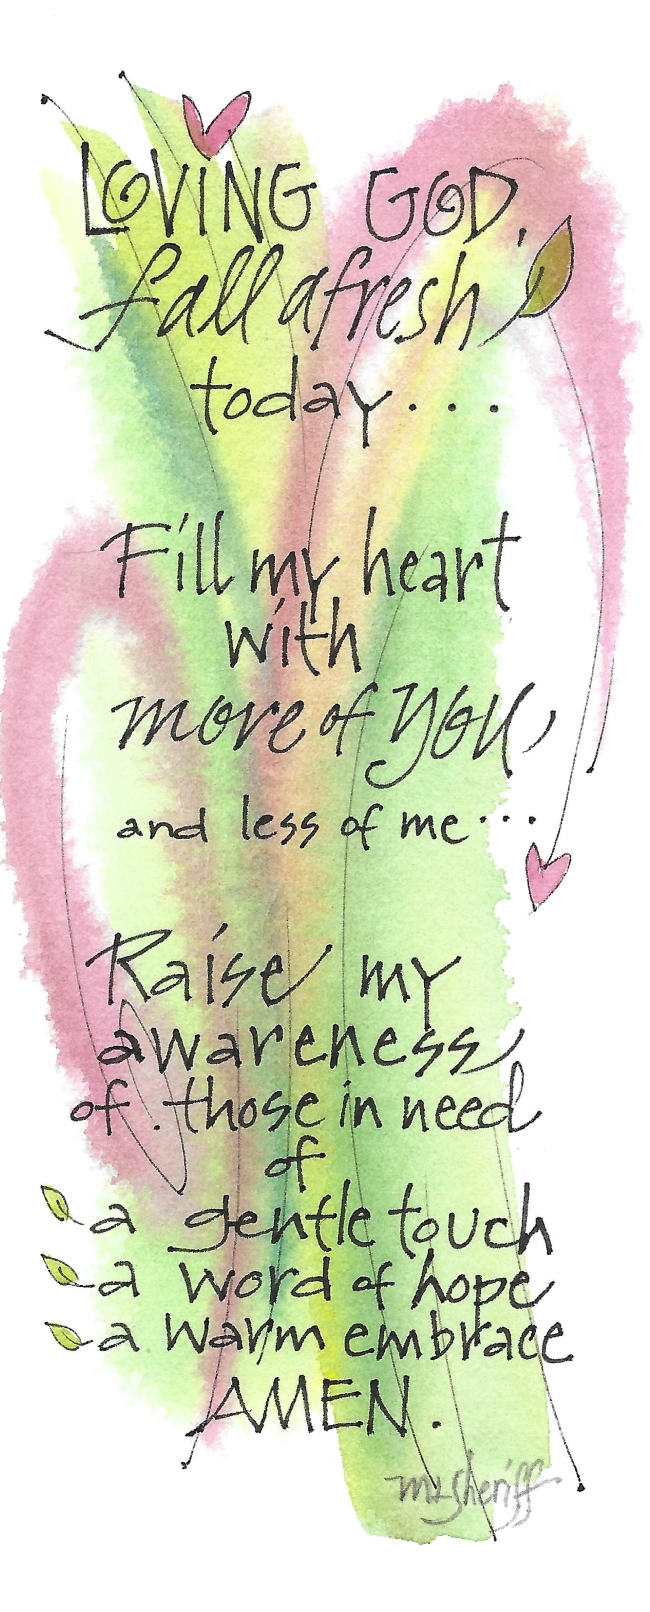 LOVING GOD,
fall afresh
today....
Fill my heart
with
more of YOU,
and less of me...
Raise my
awareness
of those in need
of
a gentle touch
a word of hope
a warm embrace
AMEN.